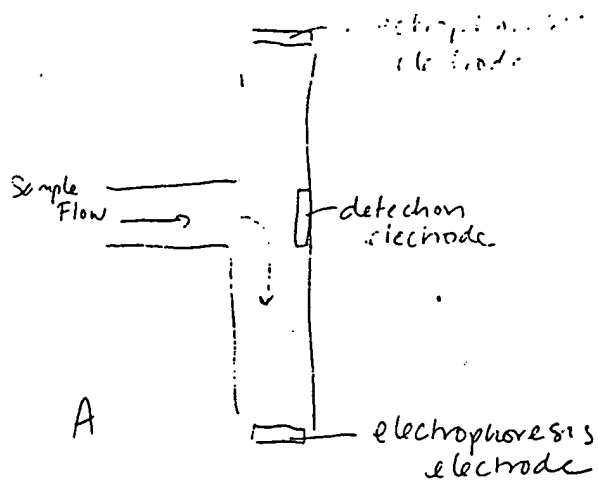 Sample
Flow
detection
electrode
A
electrophoresis
electrode